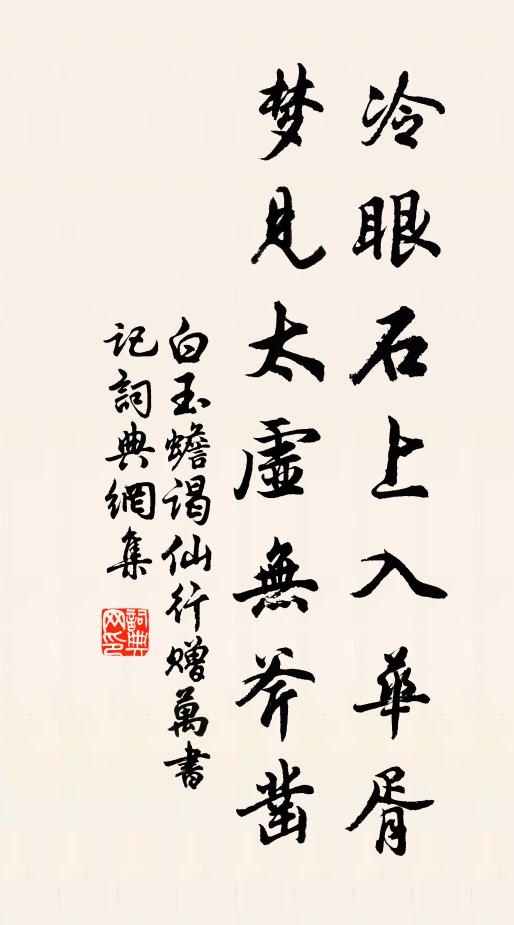 冷眼石上入華胥
梦見太虛無斧凿
白玉蟾谒仙行赠萬書
记詞典網集
詞典
网印